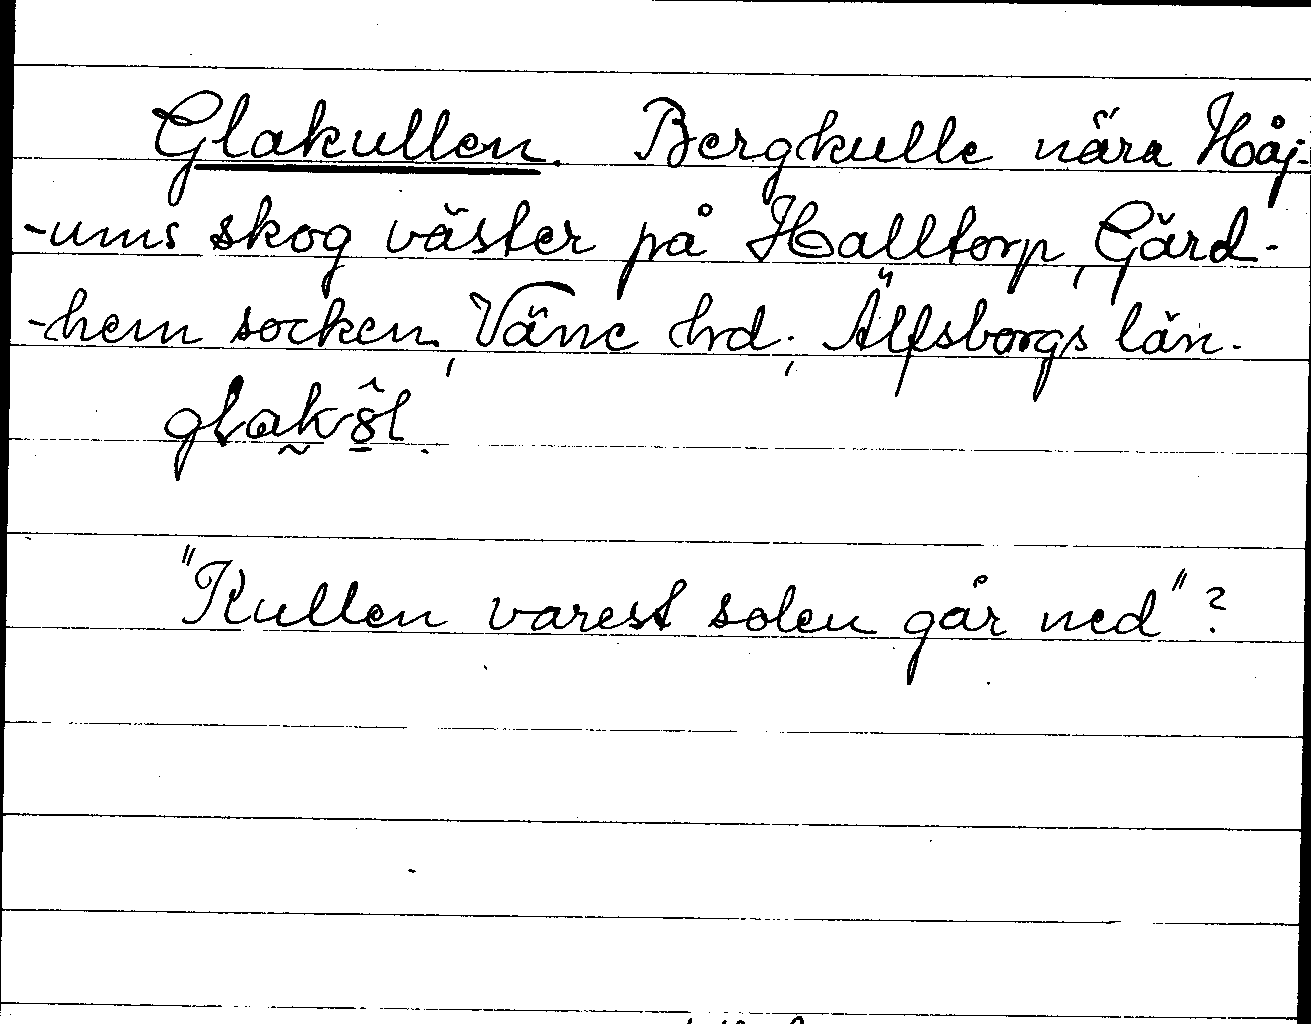 Glakullen. Bergkulle nära Håj-
-ums skog väster på Halltorp, Gärd-
-hem socken, Väne hrd; Älfsborgs län.
"Kullen varest solen går ned"?